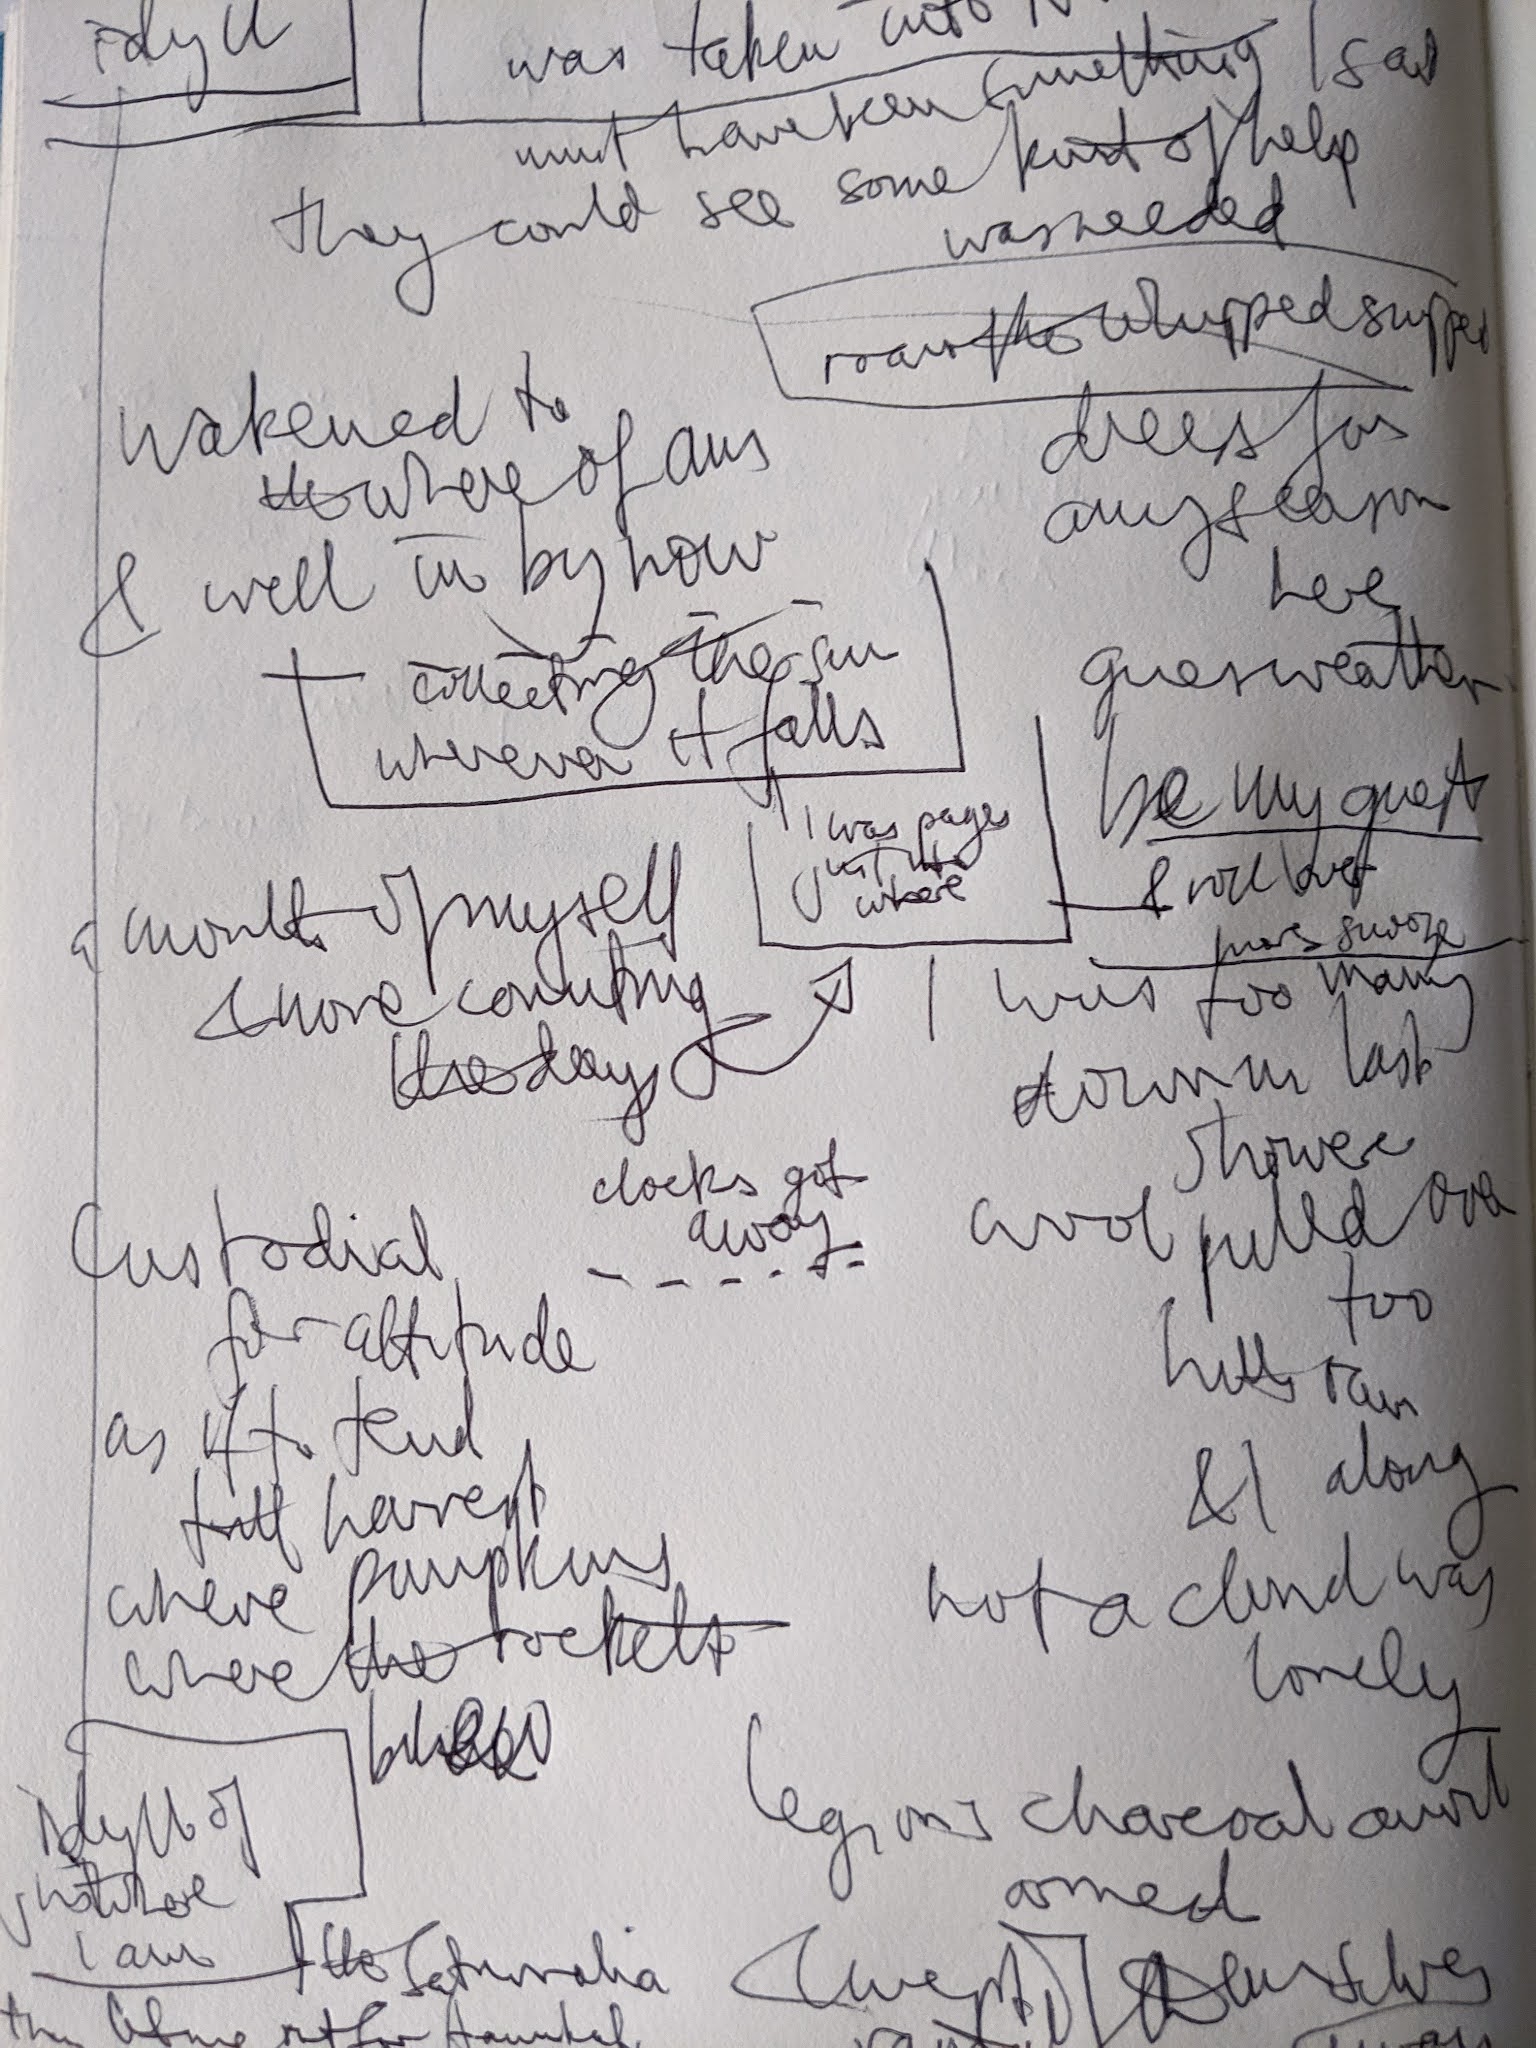 idyll
I was taken into
must have been something I said
they could see some kind of help
was needed
roar whipped snipped
wakened to
the where of am
& well in by now
collecting the sun
wherever it falls
a month of myself
& more counting
the days
I was pages
just into
where
clocks got
away
custodial
for altitude
as if to tend
full harvest
where pumpkins
where the rockets
idyll of
just where
I am
the Saturnalia
dress for
any season
here
guess weather
be my guest
& roll over
more snooze
I was too many
down in last
shower
wool pulled over
too
hills ran
& I along
not a cloud was
lonely
legions charcoal
armed
& wept themselves